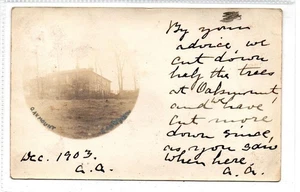 By your
advice, we
cut down
half the trees
at Oakmount,
and we have
cut more
down since,
as you saw
when here,
A. A.
OAKMOUNT
Dec. 1903.
A. A.